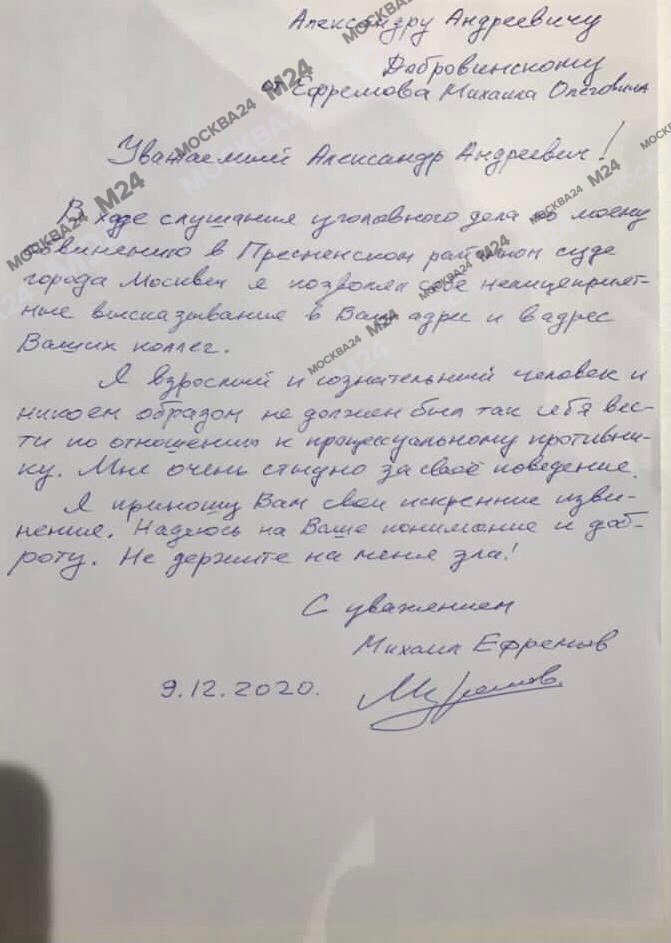 Александру Андреевичу
Добровинскому
от Ефремова Михаила Олеговича
Уважаемый Александр Андреевич!
В ходе слушания уголовного дела по моему
обвинению в Пресненском районном суде
города Москвы я позволял себе нелицеприят-
ные высказывание в Ваш адрес и в адрес
Ваших коллег.
Я взрослый и сознательный человек и
никоем образом не должен был так себя вес-
ти по отношению к процессуальному противни-
ку. Мне очень стыдно за своё поведение.
Я приношу Вам свои искренние изви-
нение. Надеюсь на Ваше понимание и доб-
роту. Не держите на меня зла!
С уважением
Михаил Ефремов
9.12.2020.
МОСКВА24 М24
МОСКВА24 М24
МОСКВА24 М24
МОСКВА24 М24
МОСКВА24 М24